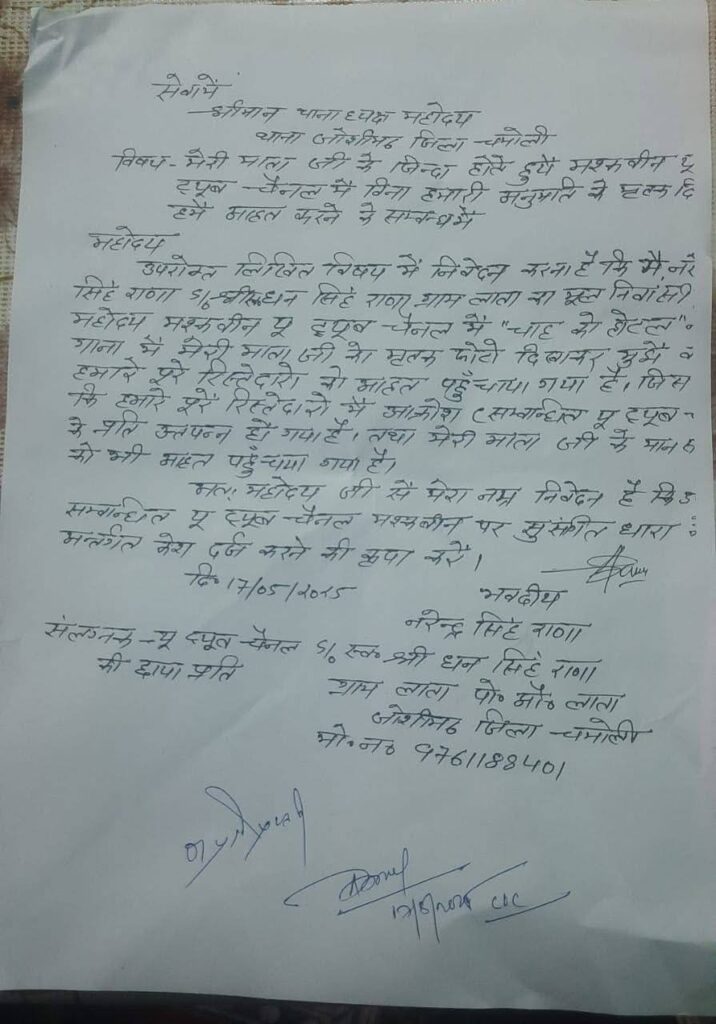 सेवामें
श्रीमान थानाध्यक्ष महोदय
थाना जोशीमठ जिला - चमोली
विषय - मेरी माता जी के जिन्दा होते हुये मश्कबीन यू
ट्यूब - चैनल में बिना हमारी अनुमति के मृतक दि
हमें आहत करने के सम्बन्ध में
महोदय
उपरोक्त लिखित विषय में निवेदन करना है कि मैं नरे
सिंह राणा S/o धन सिंह राणा ग्राम लाता का मूल निवासी
महोदय मश्कबीन यू ट्यूब - चैनल में "चाह को होटल"
गाना में मेरी माता जी का मृतक फोटो दिखाकर मुझे व
हमारे पूरे रिस्तेदारो को आहत पहुँचाया गया है। जिस
कि हमारे पूरे रिस्तेदारो में आक्रोश (सम्बान्धित यू ट्यूब -
के प्रति उत्पन्न हो गया है। तथा मेरी माता जी के मान
को भी आहत पहुँचाया गया है।
अतः महोदय जी से मेरा नम्र निवेदन है कि उ
सम्बान्धित यू ट्यूब - चैनल मश्कबीन पर सुसंगत धारा
अन्तर्गत केश दर्ज करने की कृपा करें।
दि॰ 17/05/2025
भवदीय
नरेन्द्र सिंह राणा
संलग्नक - यू ट्यूब चैनल
की छाया प्रति
S/o स्व॰ श्री धन सिंह राणा
ग्राम लाता पो॰ औ॰ लाता
जोशीमठ जिला - चमोली
मो॰ न॰ 9761188401